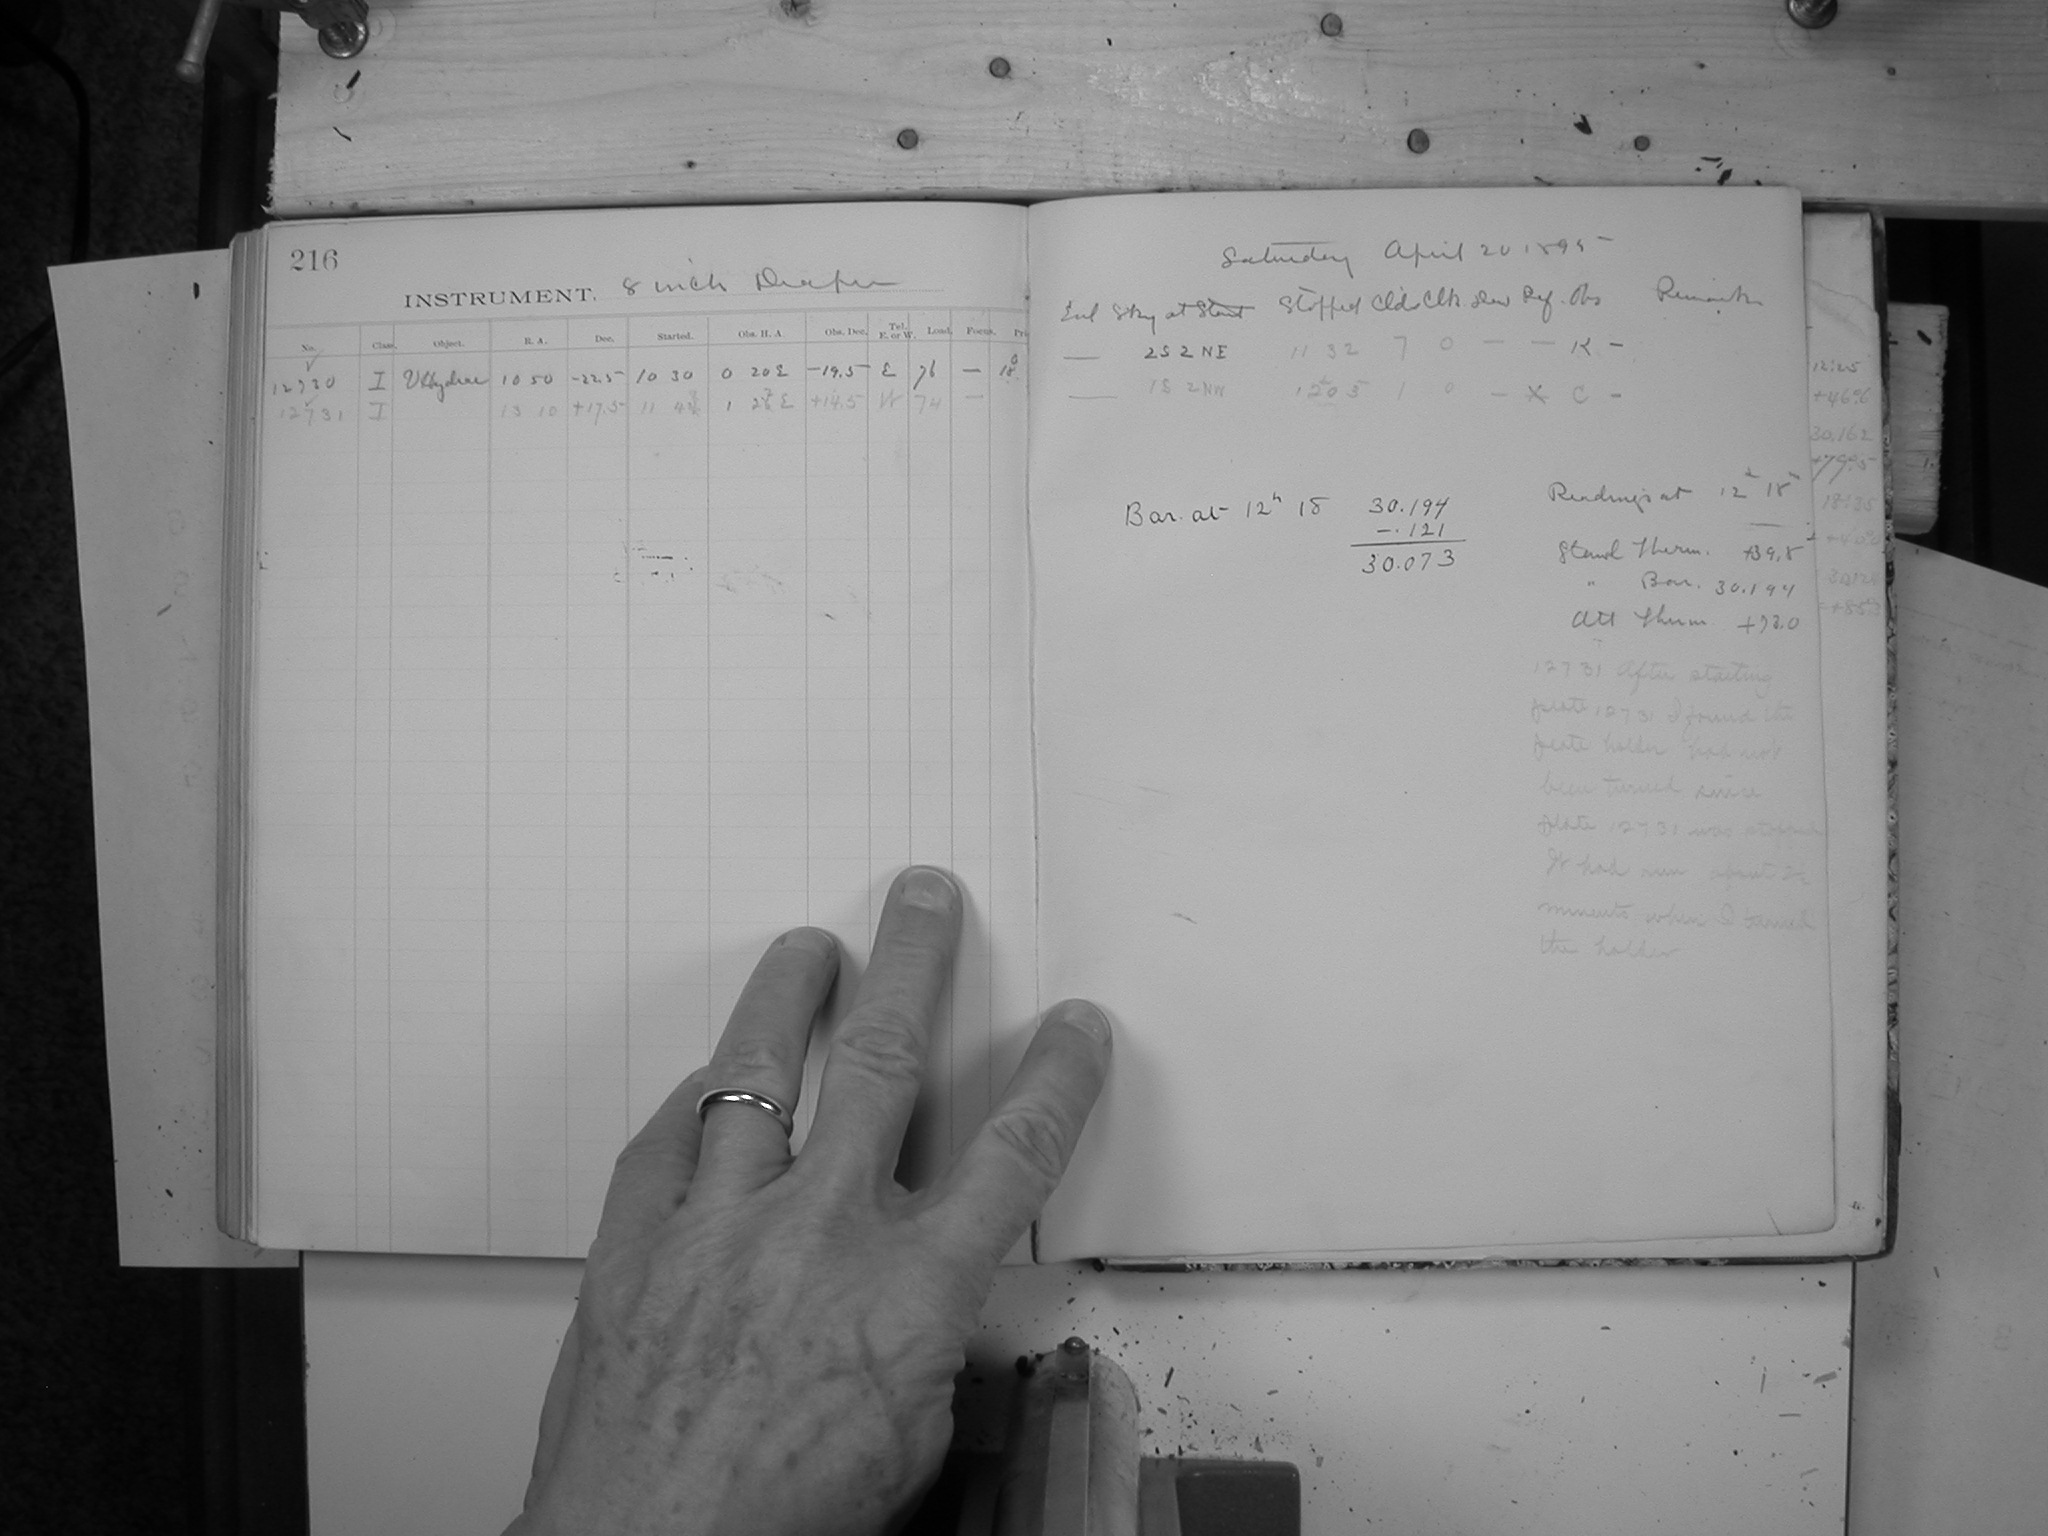 216
INSTRUMENT. 8 inch Draper
No. Class. Object. R. A. Dec. Started. Obs. H. A. Obs. Dec. Tel. E. or W. Load. Focus.
12730 I V Hydrae 10 50 -22.5 10 30 0 20 E -19.5 E 76 —
12731 I 13 10 +17.5 11 1 E +14.5 W 74 —
Saturday April 20 1895
Exd Sky at Start Stopped Clds Clk. Dew Ref. Obs Remarks
— 2S 2NE 11 32 7 0 — — K -
— 1S 2NW 1 0 - X C -
Bar. at 12h 18
30.194
-.121
30.073
Readings at 12h 18
Stand Therm. +39.8
" Bar. 30.194
Att Therm +73.0
12731 After starting
plate 12731 I found the
plate holder had not
been turned since
plate 12731 was stopped
It had run about
minutes when I turned
the holder
12:25
30.162